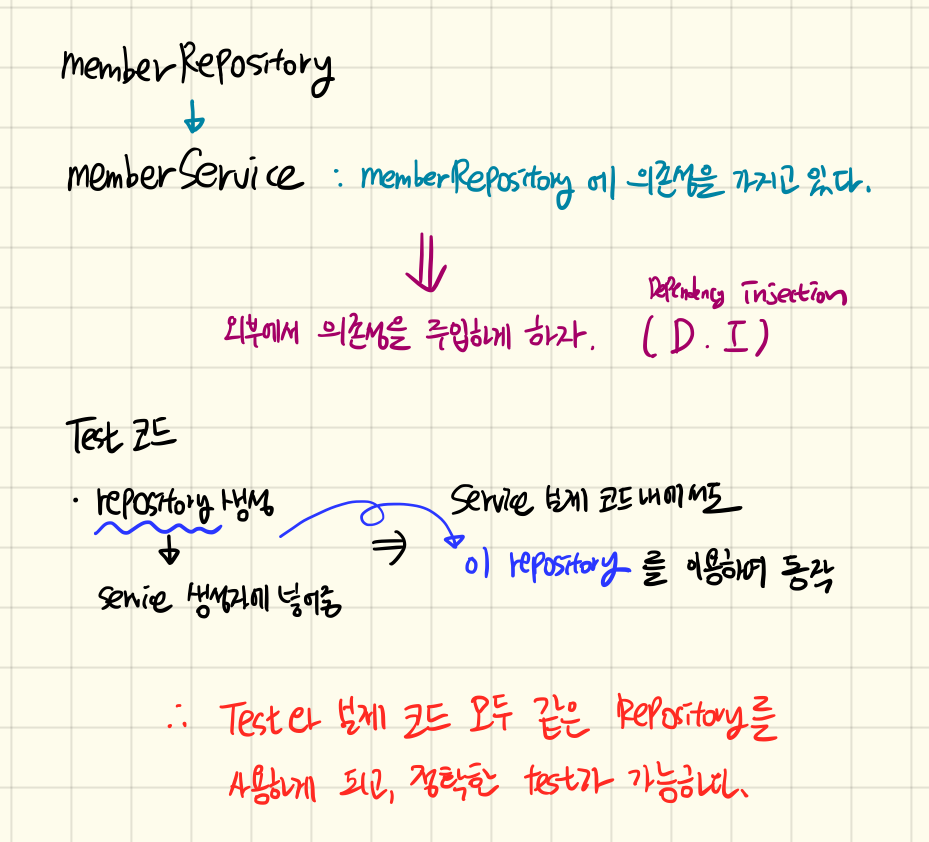 memberRepository
↓
memberService : memberRepository에 의존성을 가지고 있다.
⇓
Dependency Injection
외부에서 의존성을 주입하게 하자. (D.I)
Test 코드
· repository 생성
↓
service 생성자에 넣어줌
⇒
Service 실제 코드내에서도
이 repository를 이용하여 동작
∴ Test와 실제 코드 모두 같은 Repository를
사용하게 되고, 정확한 test가 가능하다.